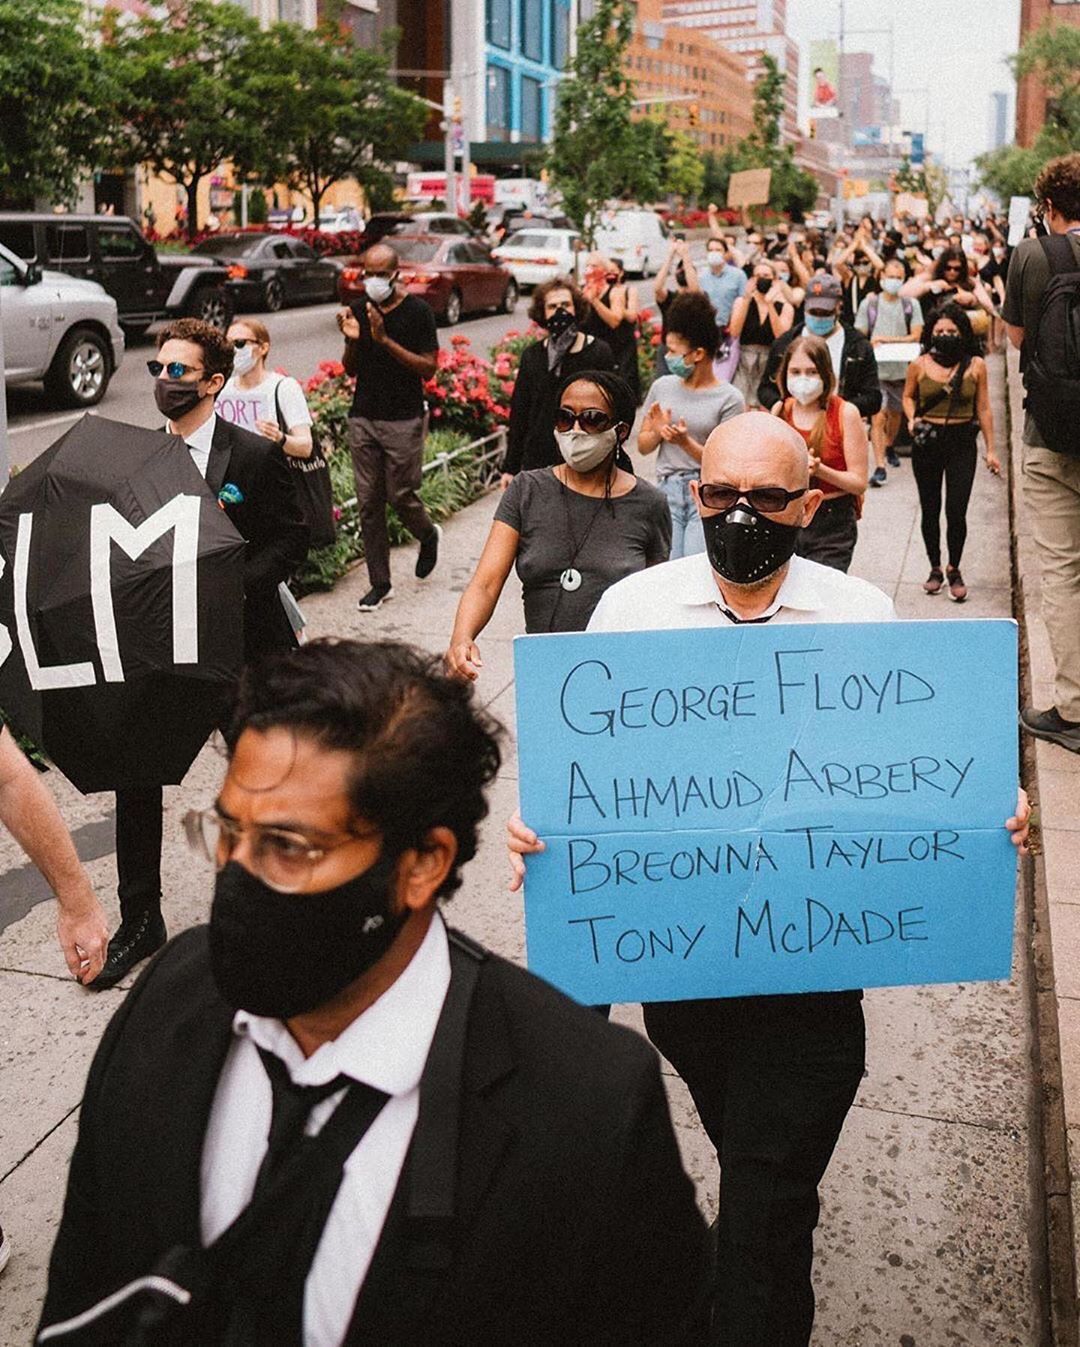 PORT
LM
GEORGE FLOYD
AHMAUD ARBERY
BREONNA TAYLOR
TONY MCDADE